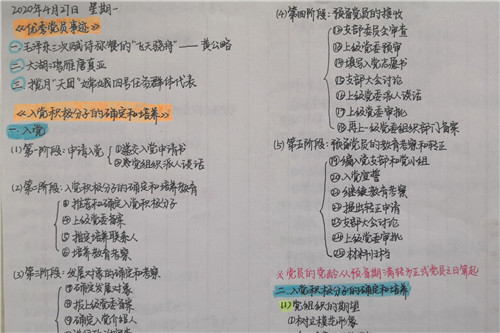 2020年4月27日 星期一
《优秀党员事迹》
一、毛泽东三次赋诗称赞的"飞天骁将"——黄公略
二、大湖鸿雁唐真亚
三、揽月"天团"嫦娥四号任务群体代表
《入党积极分子的确定和培养》
一、入党
(1)第一阶段:申请入党
①递交入党申请书
②党组织派人谈话
(2)第二阶段:入党积极分子的确定和培养教育
③推荐和确定入党积极分子
④上级党委备案
⑤指定培养联系人
⑥培养教育考察
(3)第三阶段:发展对象的确定和考察
⑦确定发展对象
⑧报上级党委备案
⑨确定入党介绍人
(4)第四阶段:预备党员的接收
⑫支部委员会审查
⑬上级党委预审
⑭填写入党志愿书
⑮支部大会讨论
⑯上级党委派人谈话
⑰上级党委审批
⑱再上一级党委组织部门备案
(5)第五阶段:预备党员的教育考察和转正
⑲编入党支部和党小组
⑳入党宣誓
㉑继续教育考察
㉒提出转正申请
㉓支部大会讨论
㉔上级党委审批
㉕材料归档
※党员的党龄从预备期满转为正式党员之日算起
二、入党积极分子的确定和培养
(1)党组织的期望
①树立模范形象